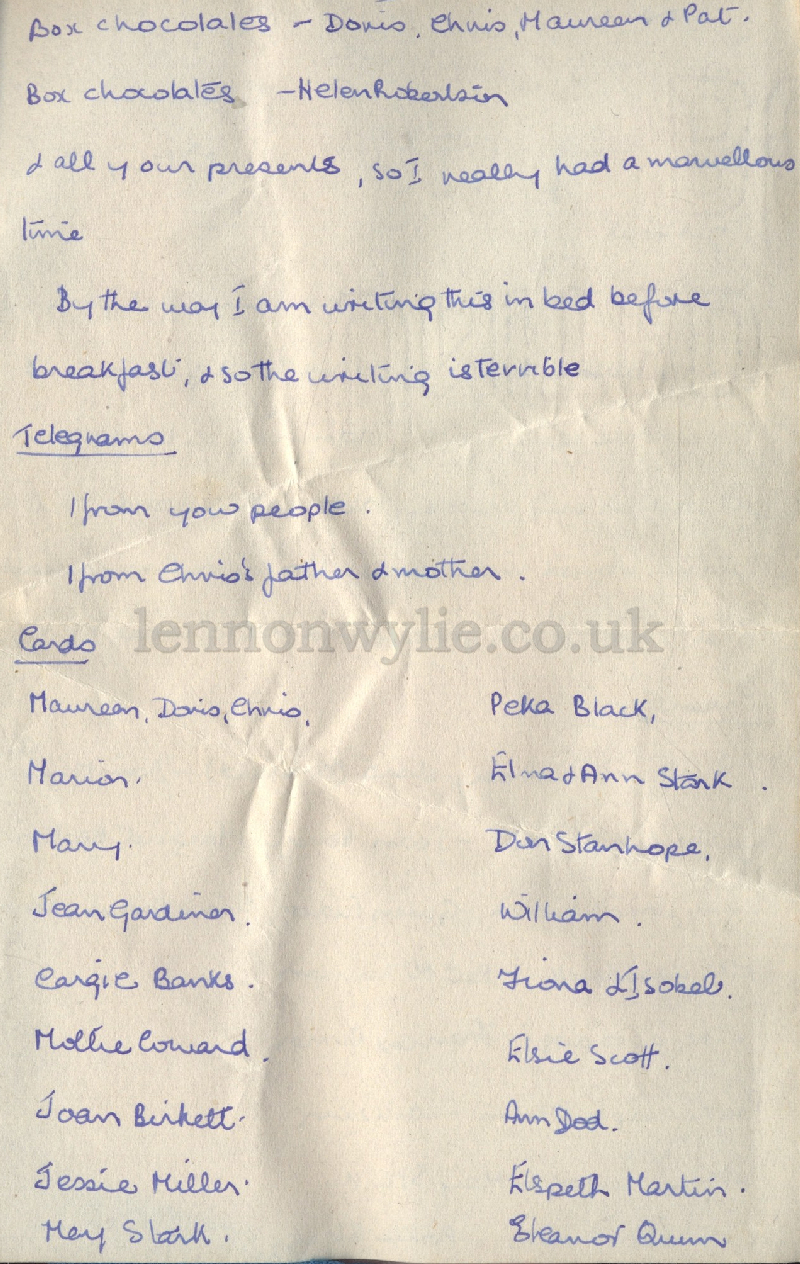 Box chocolates - Doris, Chris, Maureen & Pat.
Box chocolates - Helen Robertson
& all your presents, so I really had a marvellous
time
By the way I am writing this in bed before
breakfast, & so the writing is terrible
Telegrams
1 from your people.
1 from Chris's father & mother.
lennonwylie.co.uk
Cards
Maureen, Doris, Chris,
Marion.
Mary.
Jean Gardiner.
Cargie Banks.
Mollie Coward.
Joan Birkett.
Jessie Miller.
May Stark.
Peka Black,
Elna & Ann Stark.
Don Stanhope,
William.
Fiona & Isobel.
Elsie Scott.
Ann Dod.
Elspeth Martin.
Eleanor Quinn